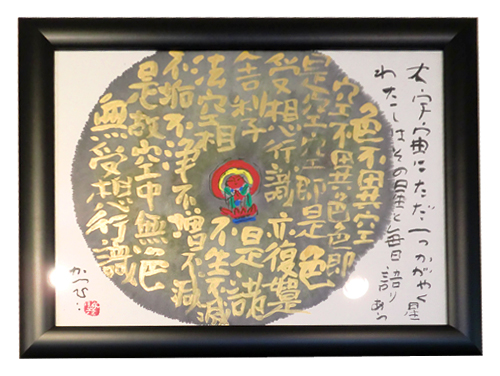 大宇宙にただ一つかがやく星
わたしはその星と毎日語りあう
色不異空
空不異色色即
是空空即是色
受想行識亦復如是
舎利子是諸
法空相不生不滅
不垢不浄不増不減
是故空中無色
無受想行識